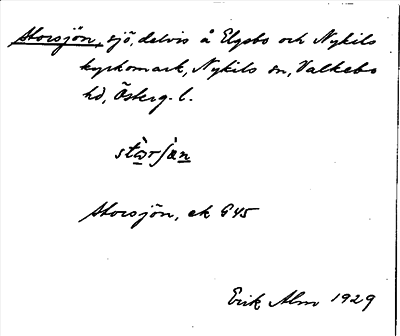 Storsjön, sjö, delvis å Elgsbo och Nykils
kyrkomark, Nykils sn, Valkebo
hd, Österg. l.
Storsjön, ek 645
Erik Alm 1929